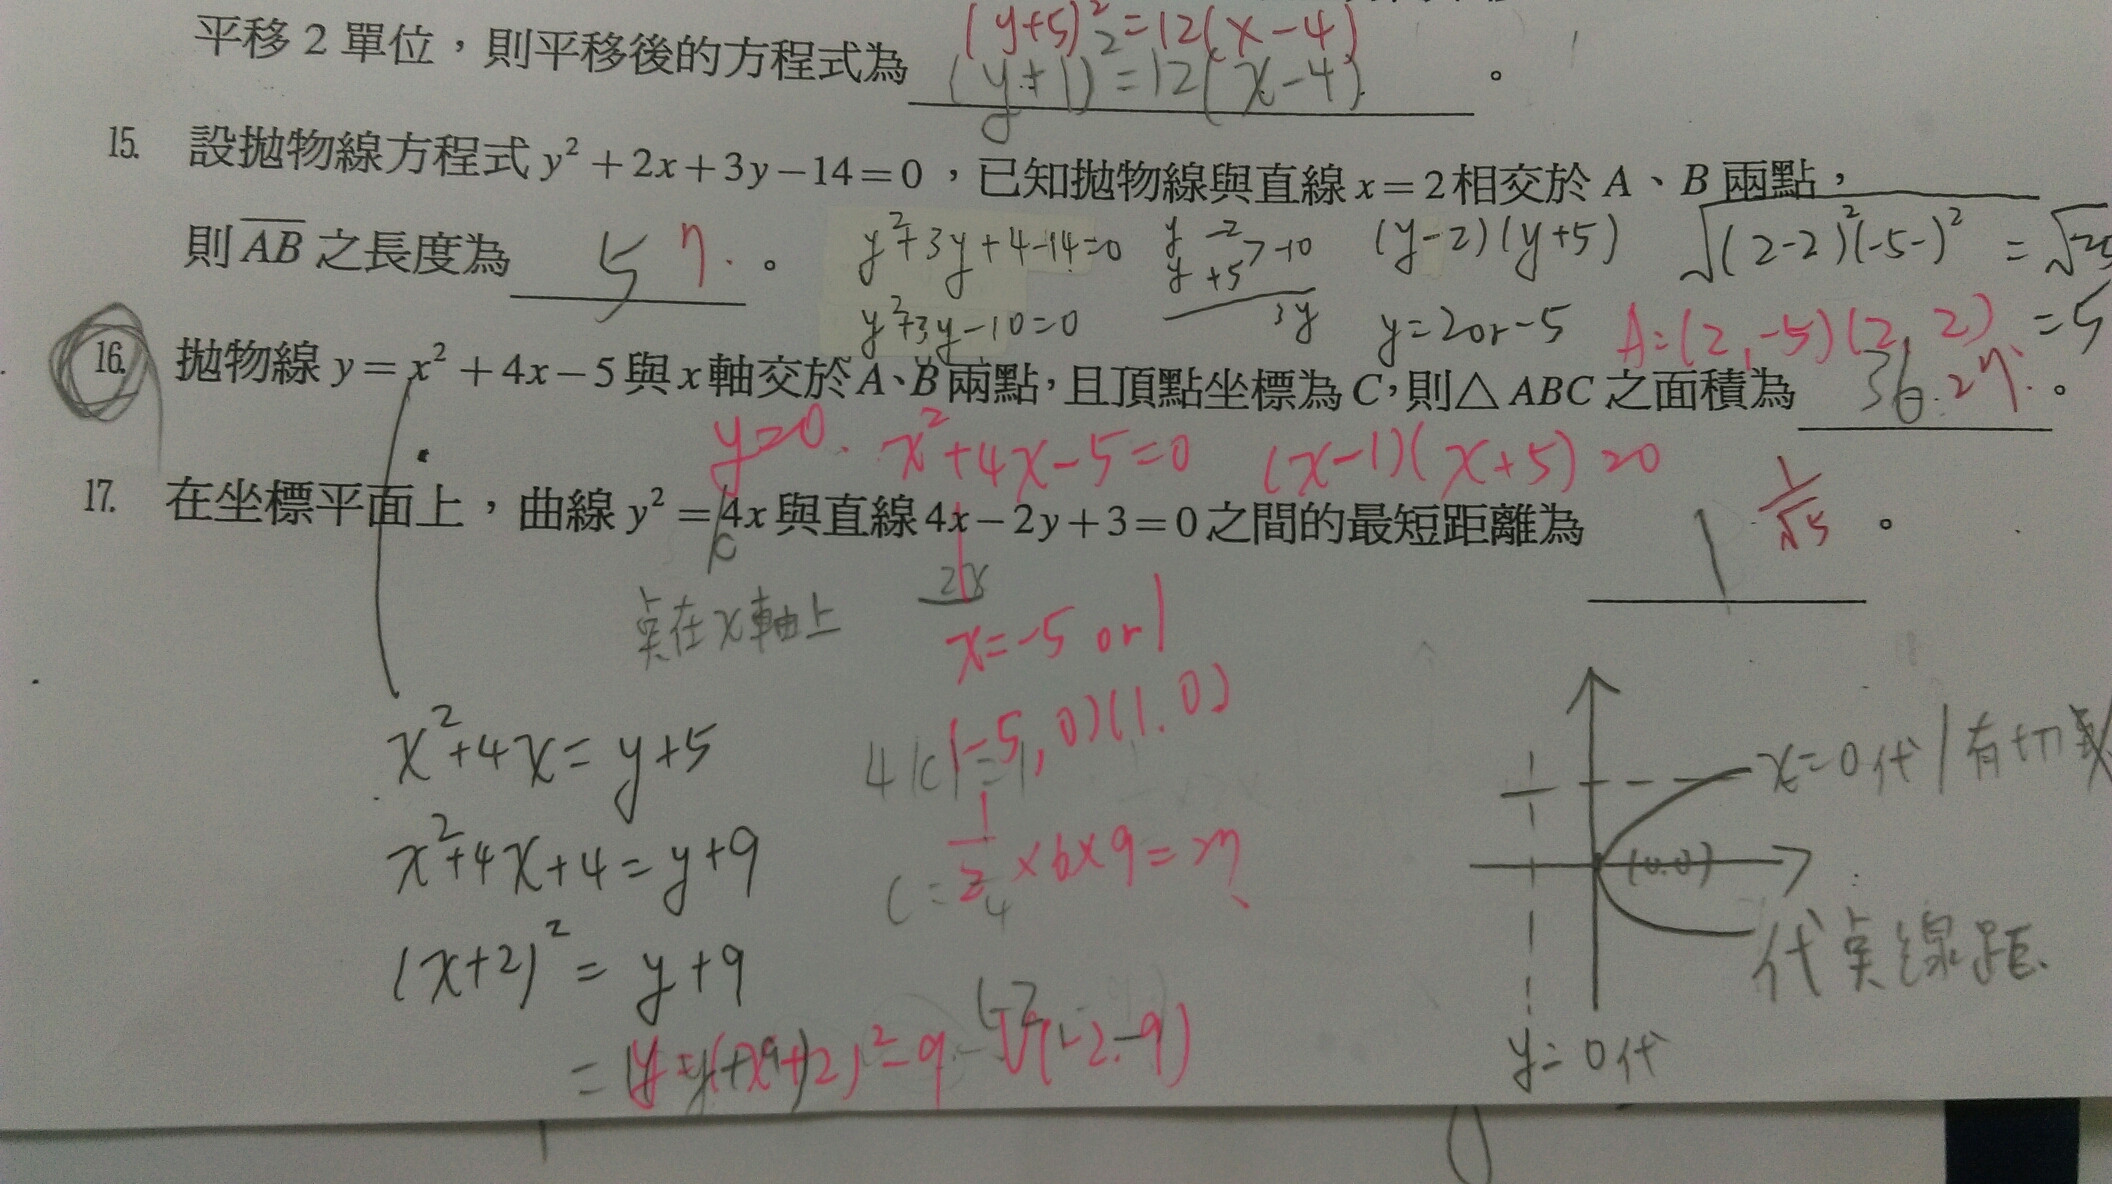 (y+5)²=12(x-4)
平移 2 單位，則平移後的方程式為 (y+1)²=12(x-4)。
15. 設拋物線方程式 y²+2x+3y-14=0，已知拋物線與直線 x=2 相交於 A、B 兩點，
則 AB 之長度為 5 7.。
y²+3y+4-14=0
y -2 >-10
y +5
3y
(y-2)(y+5)
√(2-2)²(-5-)² = √25
y²+3y-10=0
y=2or-5
A=(2,-5)(2,2)
=5
16. 拋物線 y=x²+4x-5 與 x 軸交於 A、B 兩點，且頂點坐標為 C，則△ABC 之面積為 36 27.。
y=0. x²+4x-5=0 (x-1)(x+5)=0
17. 在坐標平面上，曲線 y²=4x 與直線 4x-2y+3=0 之間的最短距離為 1 1/√5。
c
2x
点在x軸上
x=-5 or 1
(-5,0)(1.0)
x²+4x=y+5
4|c|=1
x²+4x+4=y+9
1/2×6×9=27
(x+2)²=y+9
(-2.-9)
x=0代
(0.0)
代点線距.
y=0代